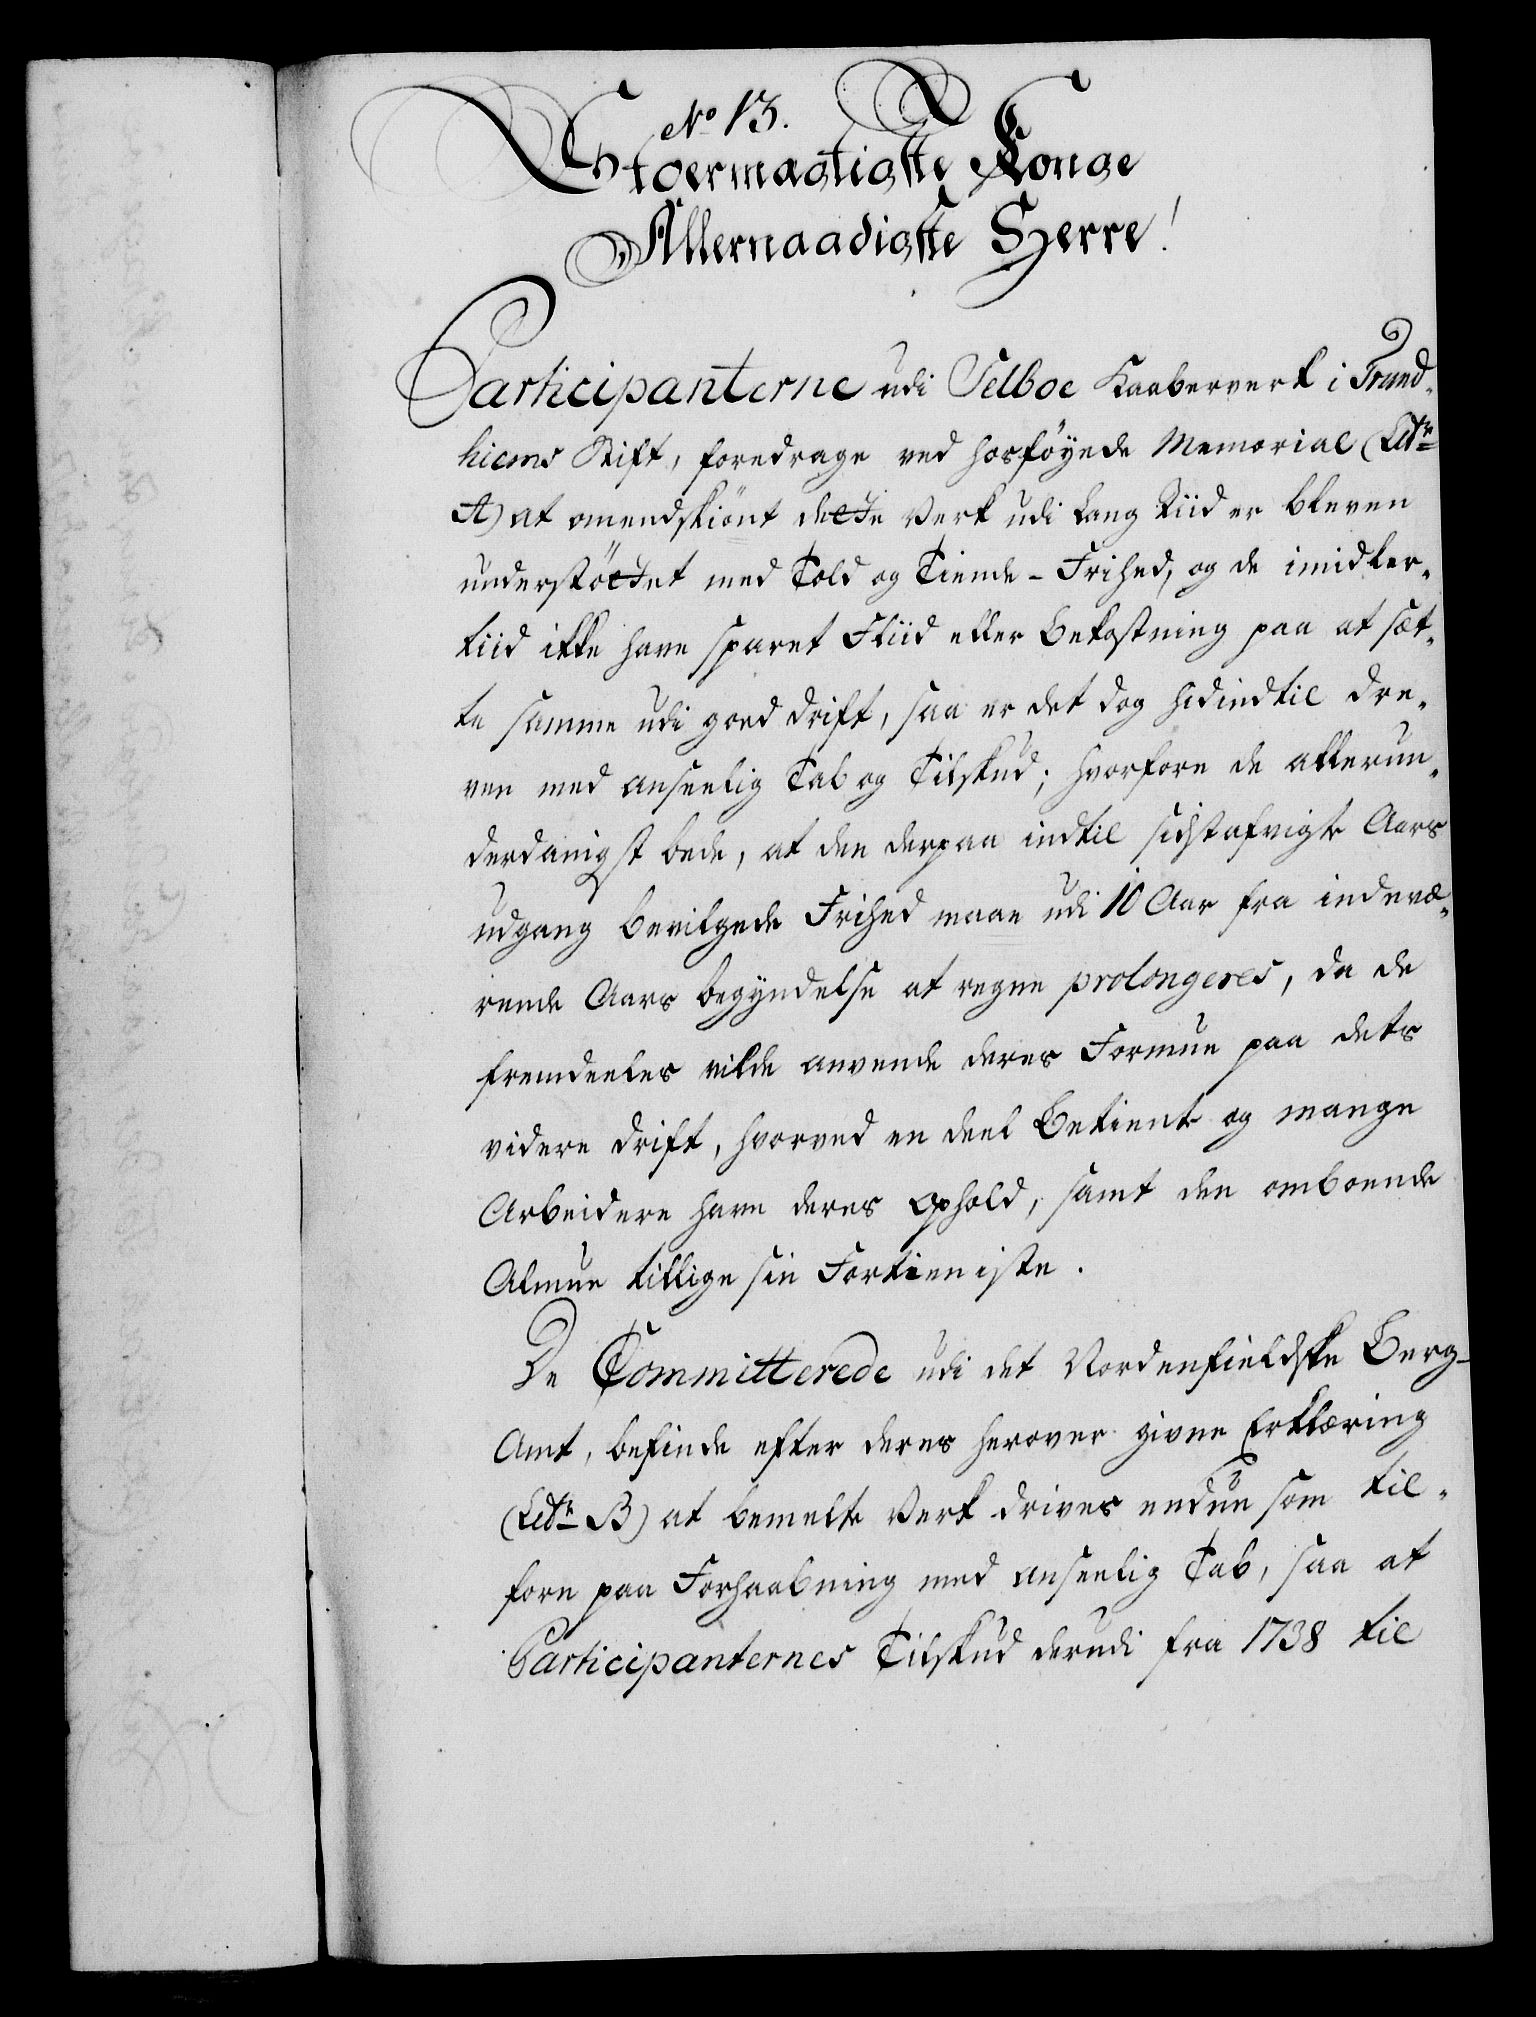 No 13.
Stoermagtigste Konge
Allernaadigste Herre!
Participanterne udi Selboe Kaaberverk i Trund-
hiems Stift, foredrage ved hosføyede Memorial (Litr:
A) at omendskiønt dette Verk udi lang Tiid er bleven
understøttet med Told og Tiende-Frihed, og de imidler-
tiid ikke have sparet Fliid eller Bekostning paa at sæt-
te samme udi goed drift, saa er det dog hidindtil dre-
ven med anseelig Tab og Tilskud; hvorfore de allerun-
derdanigst bede, at den derpaa indtil sidstafvigte Aars
udgang bevilgede Frihed maae udi 10 Aar fra indevæ-
rende Aars begyndelse at regne prolongeres, da de
fremdeeles vilde anvende deres Formue paa dets
videre drift, hvorved en deel Betiente og mange
Arbeidere have deres Ophold, samt den omboende
Almue tillige sin Fortieniste.
De Committerede udi det Nordenfieldske Berg-
Amt, befinde efter deres herover givne Erklæring
(Litr: B) at bemelte Verk drives endnu som til-
forn paa Forhaabning med anseelig Tab, saa at
Participanternes Tilskud derudi fra 1738 til